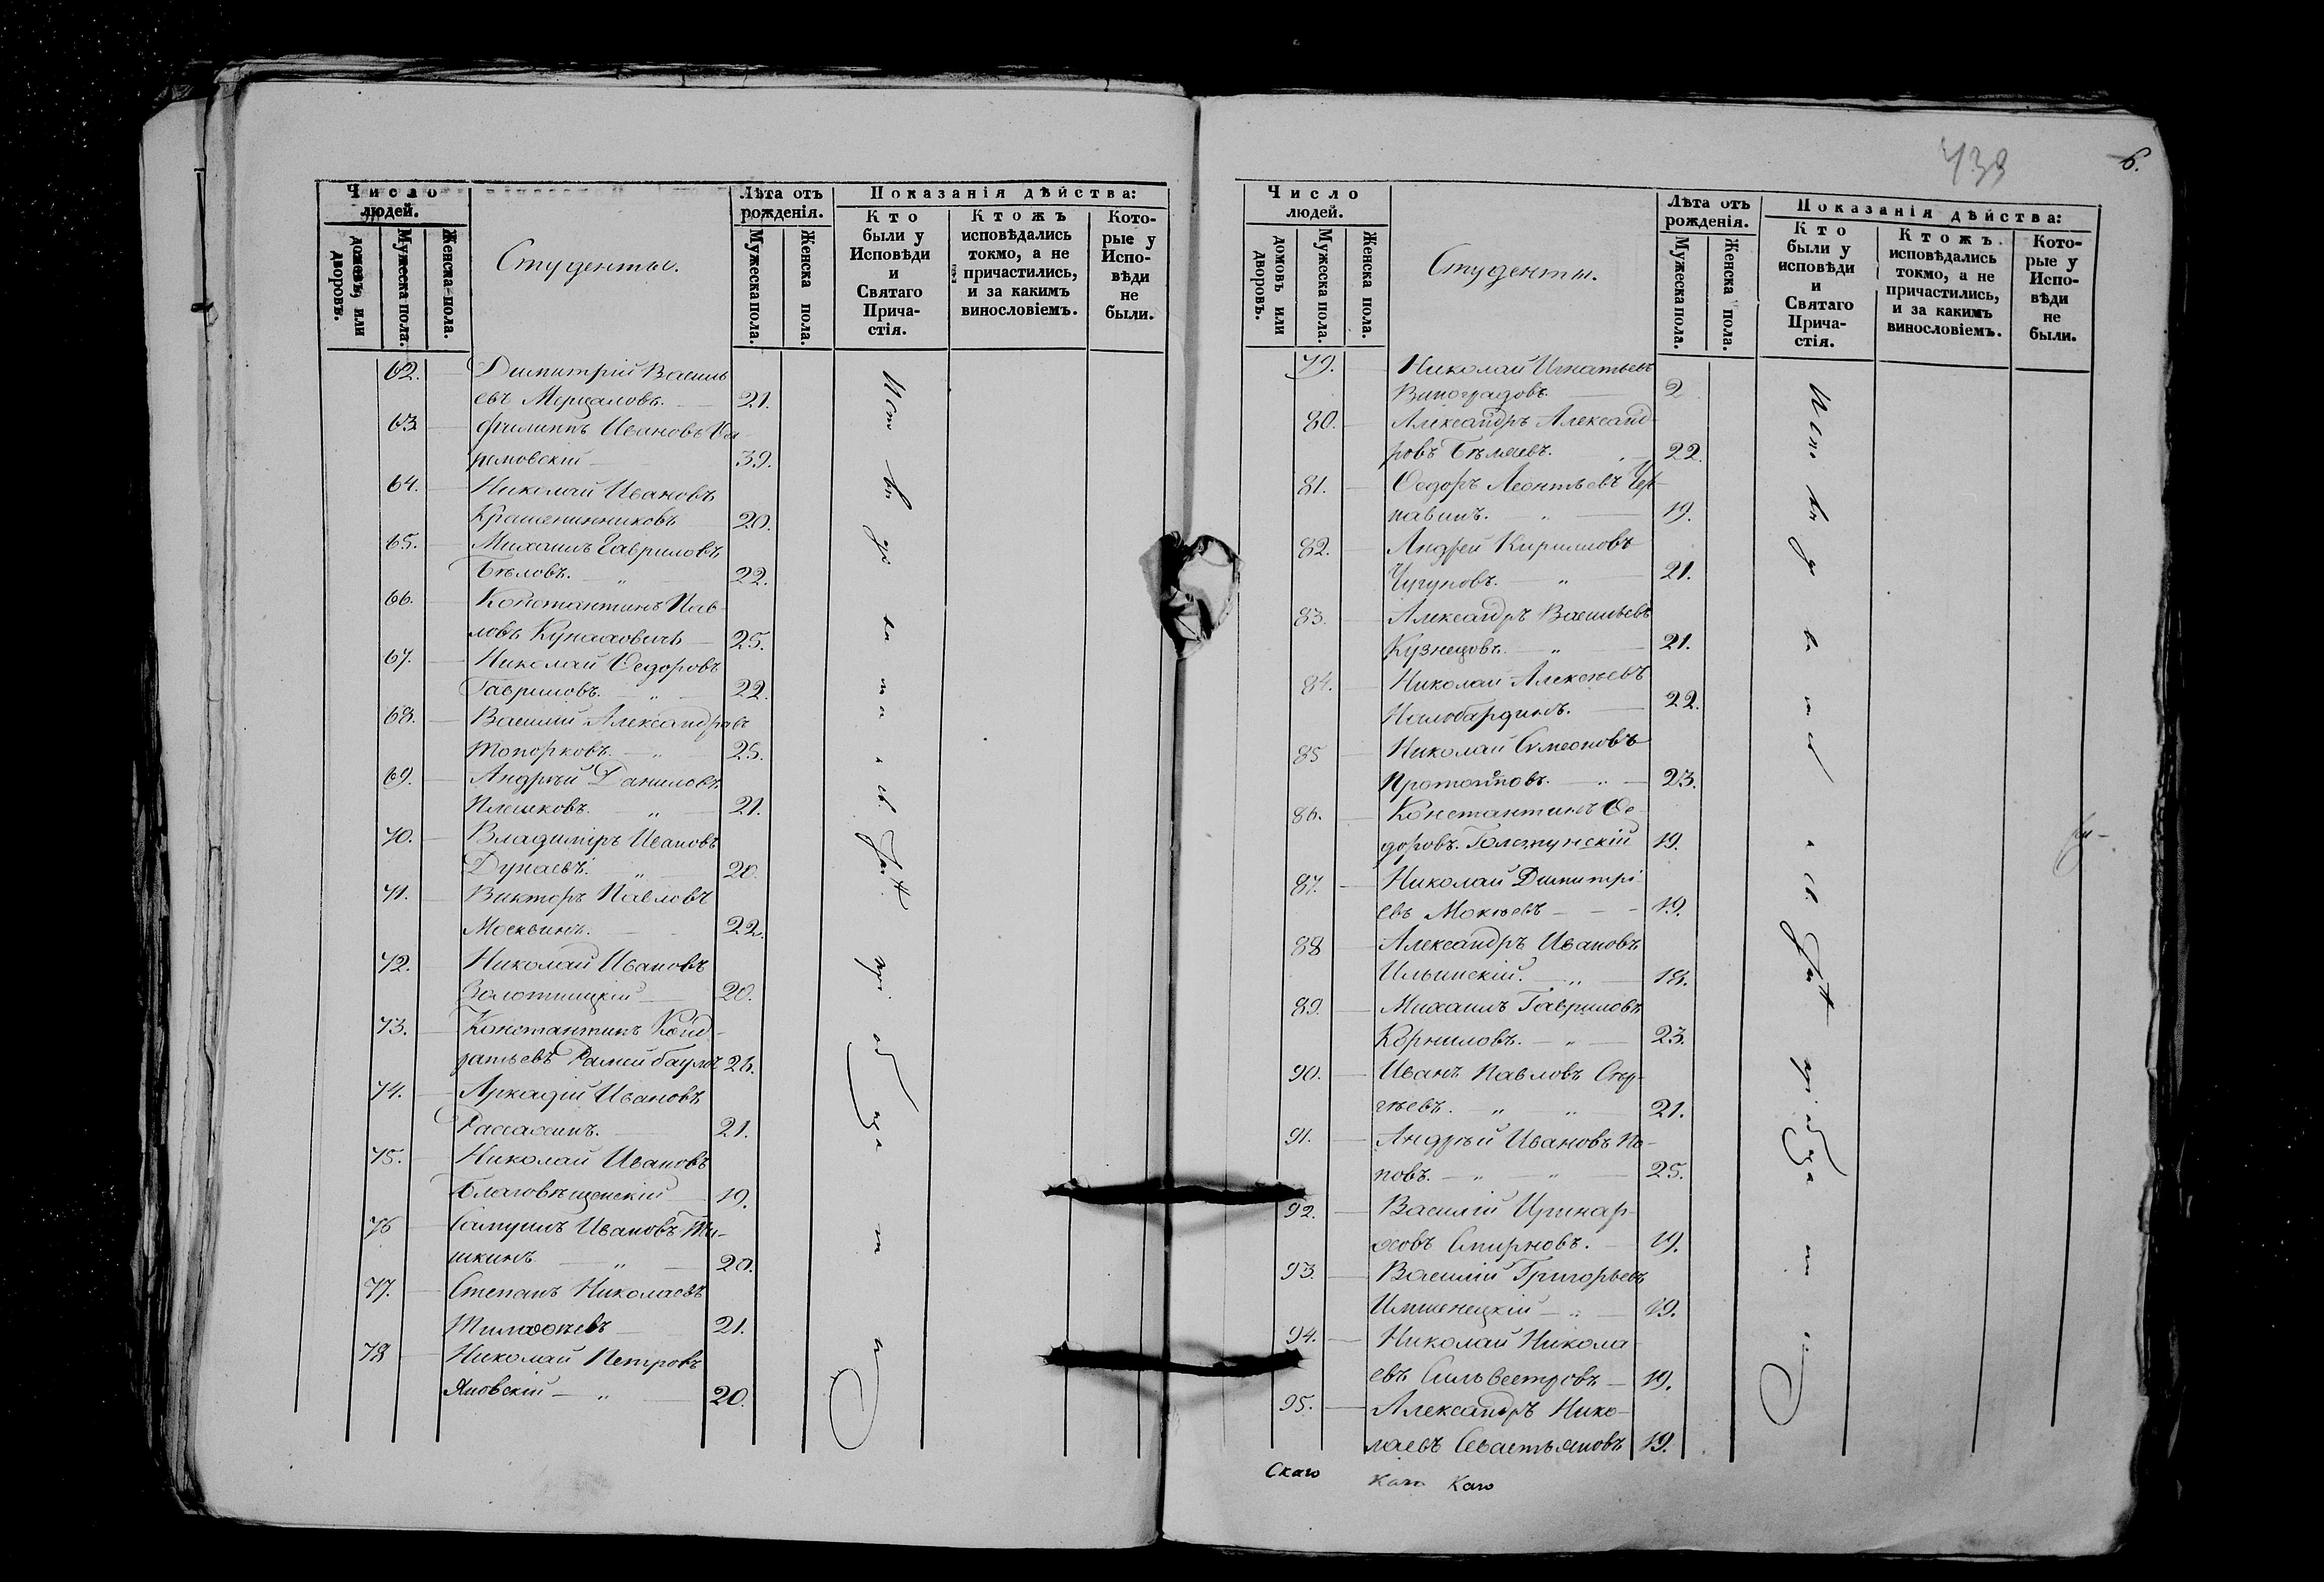 Число
людей.
домовъ, или
дворовъ.
Мужеска пола.
Женска пола.
Студенты.
Лѣта отъ
рожденія.
Мужеска пола.
Женска пола.
Показанія дѣйства:
Кто
были у
Исповѣди
и
Святаго
Прича-
стія.
Ктожъ
исповѣдались
токмо, а не
причастились,
и за какимъ
винословіемъ.
Кото-
рые у
Испо-
вѣди
не
были.
62. Димитрій Василь
евъ Мерцаловъ. 21.
63 Филиппъ Ивановъ
39.
64. Николай Ивановъ
Крашенинниковъ 20.
65. Михаилъ Гавриловъ
Бѣловъ. 22.
66. Константинъ Пав-
ловъ Кунаховичъ 25.
67. Николай Ѳедоровъ
Гавриловъ. 22.
68. Василій Александровъ
Топорковъ. 25.
69. Андрей Даниловъ
Плешковъ. 21.
70. Владиміръ Ивановъ
Дунаевъ. 20.
71. Викторъ Павловъ
Москвинъ. 22.
72. Николай Ивановъ
Золотницкій 20.
73. Константинъ Конд-
ратьевъ 26.
74. Аркадій Ивановъ
21.
75. Николай Ивановъ
Благовѣщенскій 19.
76 Самуилъ Ивановъ Ти-
шкинъ 20.
77. Степанъ Николаевъ
Тимоѳеевъ 21.
78 Николай Петровъ
Яновскій 20.
438
6.
Число
людей.
домовъ или
дворовъ.
Мужеска пола.
Женска пола.
Студенты.
Лѣта отъ
рожденія.
Мужеска пола.
Женска пола.
Показанія дѣйства:
Кто
были у
исповѣди
и
Святаго
Прича-
стія.
Ктожъ
исповѣдались
токмо, а не
причастились,
и за какимъ
винословіемъ.
Кото-
рые у
Испо-
вѣди
не
были.
79. Николай Игнатьевъ
Виноградовъ. 2
80. Александръ Александ-
ровъ Бѣляевъ. 22.
81. Ѳедоръ Леонтьевъ Чер-
павинъ. 19.
82. Андрей Кириловъ
Чугуновъ. 21.
83. Александръ Васильевъ
Кузнецовъ. 21.
84. Николай Алексѣевъ
22.
85 Николай Симеоновъ
Протопоповъ. 23.
86. Константинъ Ѳе-
доровъ Голстунскій 19.
87. Николай Димитрі-
евъ Мокѣевъ 19.
88 Александръ Ивановъ
Ильинскій. 18.
89. Михаилъ Гавриловъ
Корниловъ. 23.
90. Иванъ Павловъ Сер-
гѣевъ. 21.
91. Андрей Ивановъ По-
повъ. 25.
92. Василій Иринар-
ховъ Смирновъ. 19.
93. Василій Григорьевъ
Имшенецкій 19.
94. Николай Никола
евъ Сильвестровъ 19.
95. Александръ Нико-
лаевъ Севастьяновъ 19.
Скаго Каго Каго